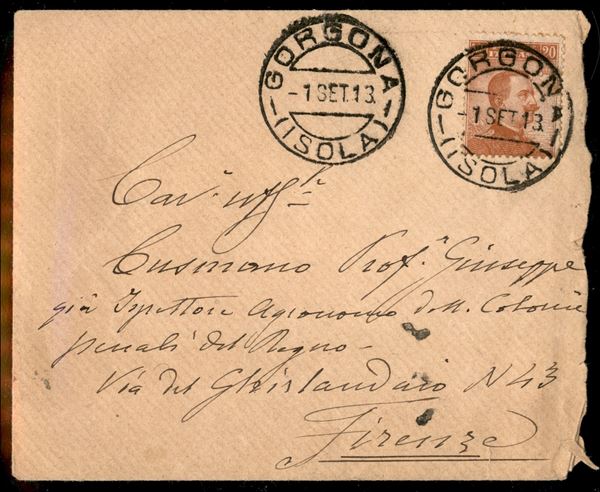 GORGONA
-1 SET.13.
(ISOLA)
20
GORGONA
-1 SET.13.
(ISOLA)
Cav. Uff.
Cusmano Prof. Giuseppe
già Ispettore Agronomo d. Colonie
penali del Regno -
Via del Ghirlandaio N 43
Firenze